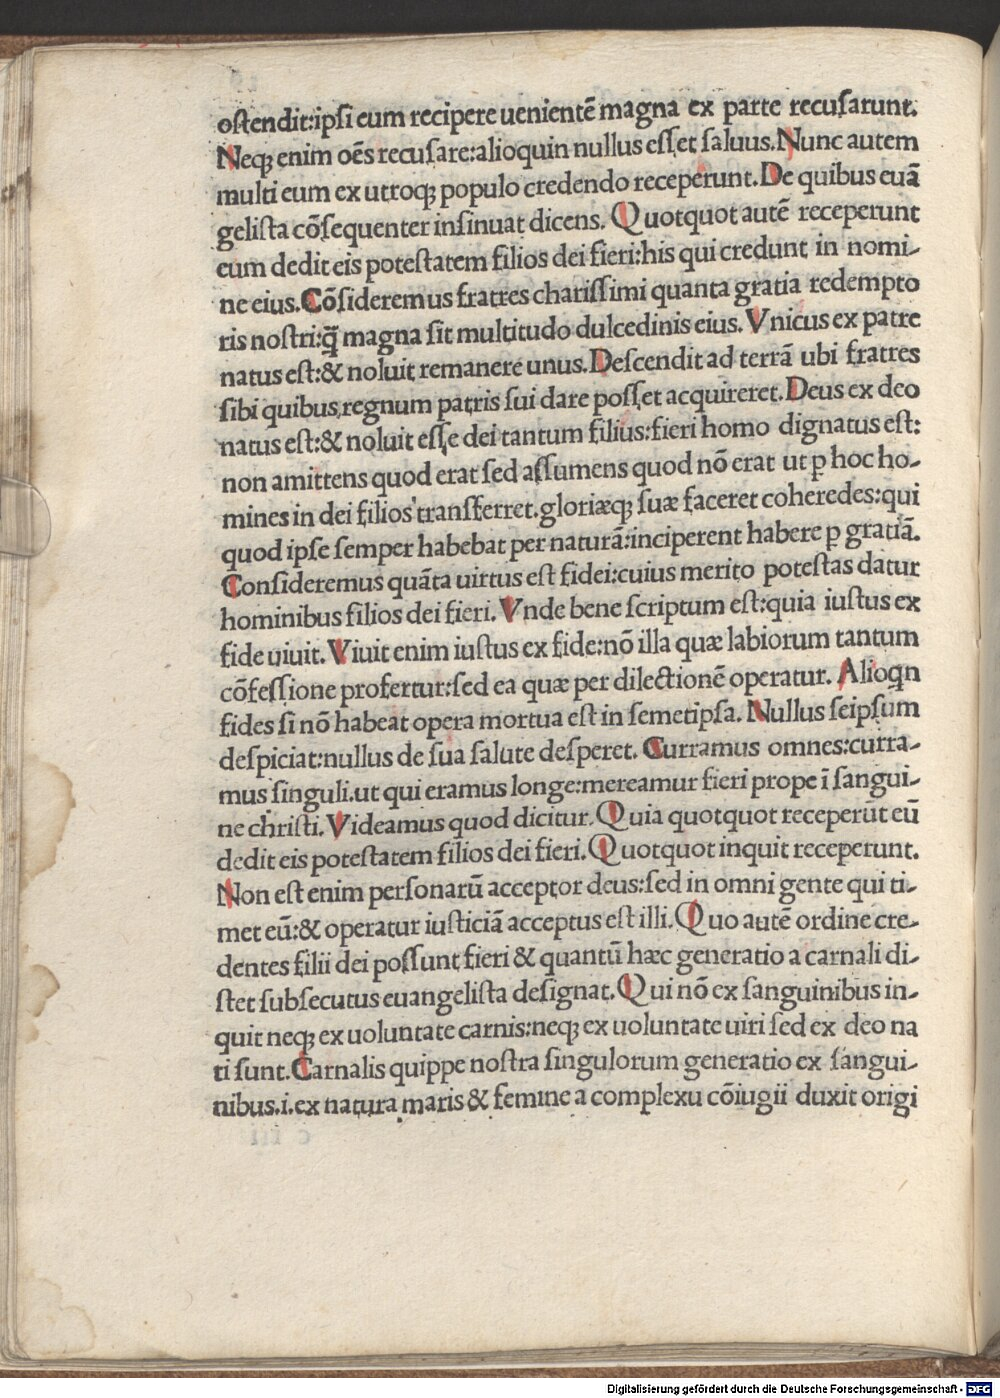 ostendit:ipsi eum recipere uenientē magna ex parte recusarunt.
Neqꝫ enim oēs recusare:alioquin nullus esset saluus.Nunc autem
multi eum ex utroqꝫ populo credendo receperunt.De quibus euā
gelista cōsequenter insinuat dicens. Quotquot autē receperunt
eum dedit eis potestatem filios dei fieri:his qui credunt in nomi-
ne eius.Cōsideremus fratres charissimi quanta gratia redempto
ris nostri:q̄ magna sit multitudo dulcedinis eius.Vnicus ex patre
natus est:& noluit remanere unus.Descendit ad terrā ubi fratres
sibi quibus regnum patris sui dare posset acquireret.Deus ex deo
natus est:& noluit esse dei tantum filius:fieri homo dignatus est:
non amittens quod erat sed assumens quod nō erat ut ꝑ hoc ho-
mines in dei filios transferret.gloriæqꝫ suæ faceret coheredes:qui
quod ipse semper habebat per naturā:inciperent habere ꝑ gratiā.
Consideremus quāta uirtus est fidei:cuius merito potestas datur
hominibus filios dei fieri.Vnde bene scriptum est:quia iustus ex
fide uiuit.Viuit enim iustus ex fide:nō illa quæ labiorum tantum
cōfessione profertur:sed ea quæ per dilectionē operatur. Alioqn
fides si nō habeat opera mortua est in semetipsa.Nullus seipsum
despiciat:nullus de sua salute desperet. Curramus omnes:curra-
mus singuli.ut qui eramus longe:mereamur fieri prope ī sangui-
ne christi.Videamus quod dicitur.Quia quotquot receperūt eū
dedit eis potestatem filios dei fieri.Quotquot inquit receperunt.
Non est enim personarū acceptor deus:sed in omni gente qui ti-
met eū:& operatur iusticiā acceptus est illi.Quo autē ordine cre-
dentes filii dei possunt fieri & quantū hæc generatio a carnali di-
stet subsecutus euangelista designat.Qui nō ex sanguinibus in-
quit neqꝫ ex uoluntate carnis:neqꝫ ex uoluntate uiri sed ex deo na
ti sunt.Carnalis quippe nostra singulorum generatio ex sangui-
nibus.i.ex natura maris & femine a complexu cōiugii duxit origi
Digitalisierung gefördert durch die Deutsche Forschungsgemeinschaft - DFG